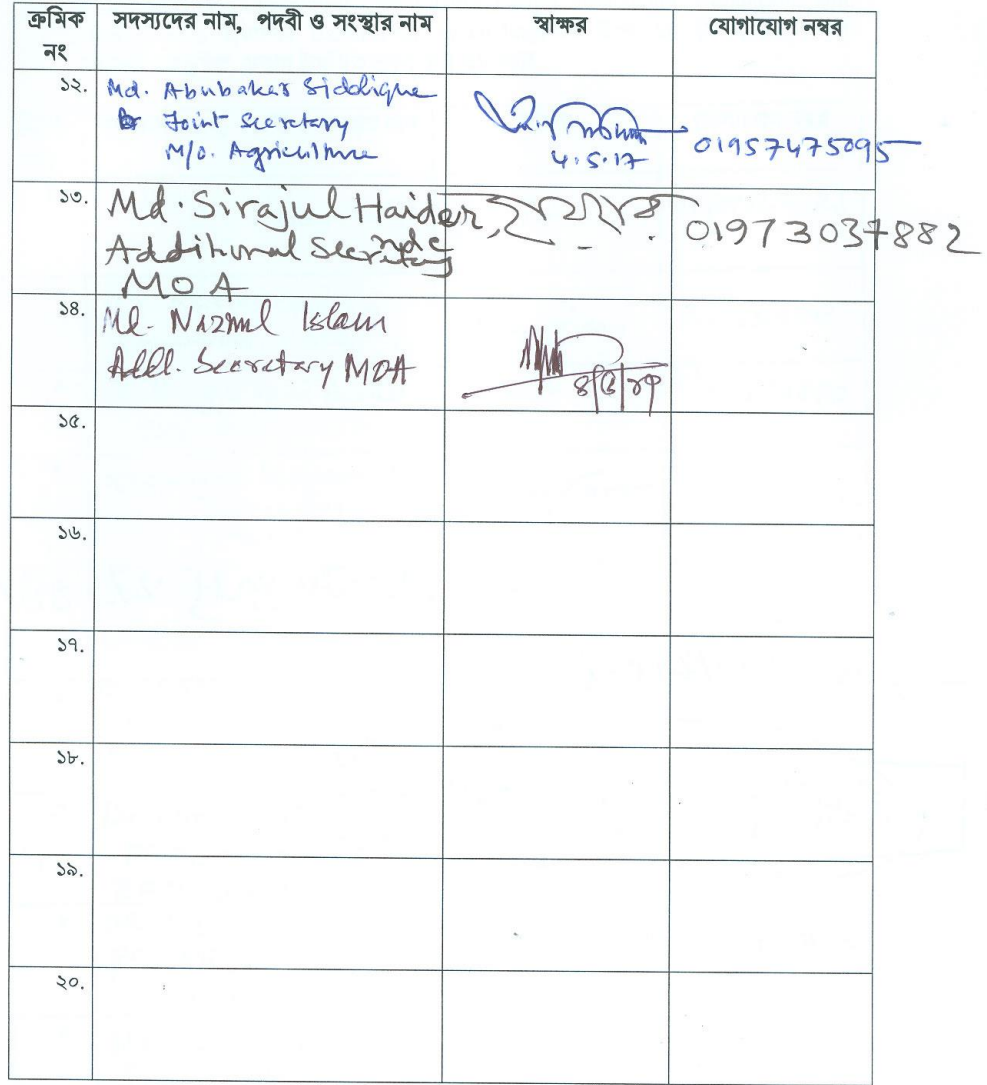 ক্রমিক নং সদস্যদের নাম, পদবী ও সংস্থার নাম স্বাক্ষর যোগাযোগ নম্বর
১২. Md. Abubakar Siddique
Joint Secretary
M/o. Agriculture
4.5.17
01957475095
১৩. Md. Sirajul Haider, ndc
Additional Secretary
MOA
01973037882
১৪. Md. Nazmul Islam
Addl. Secretary MOA
৪/৫/১৭
১৫.
১৬.
১৭.
১৮.
১৯.
২০.